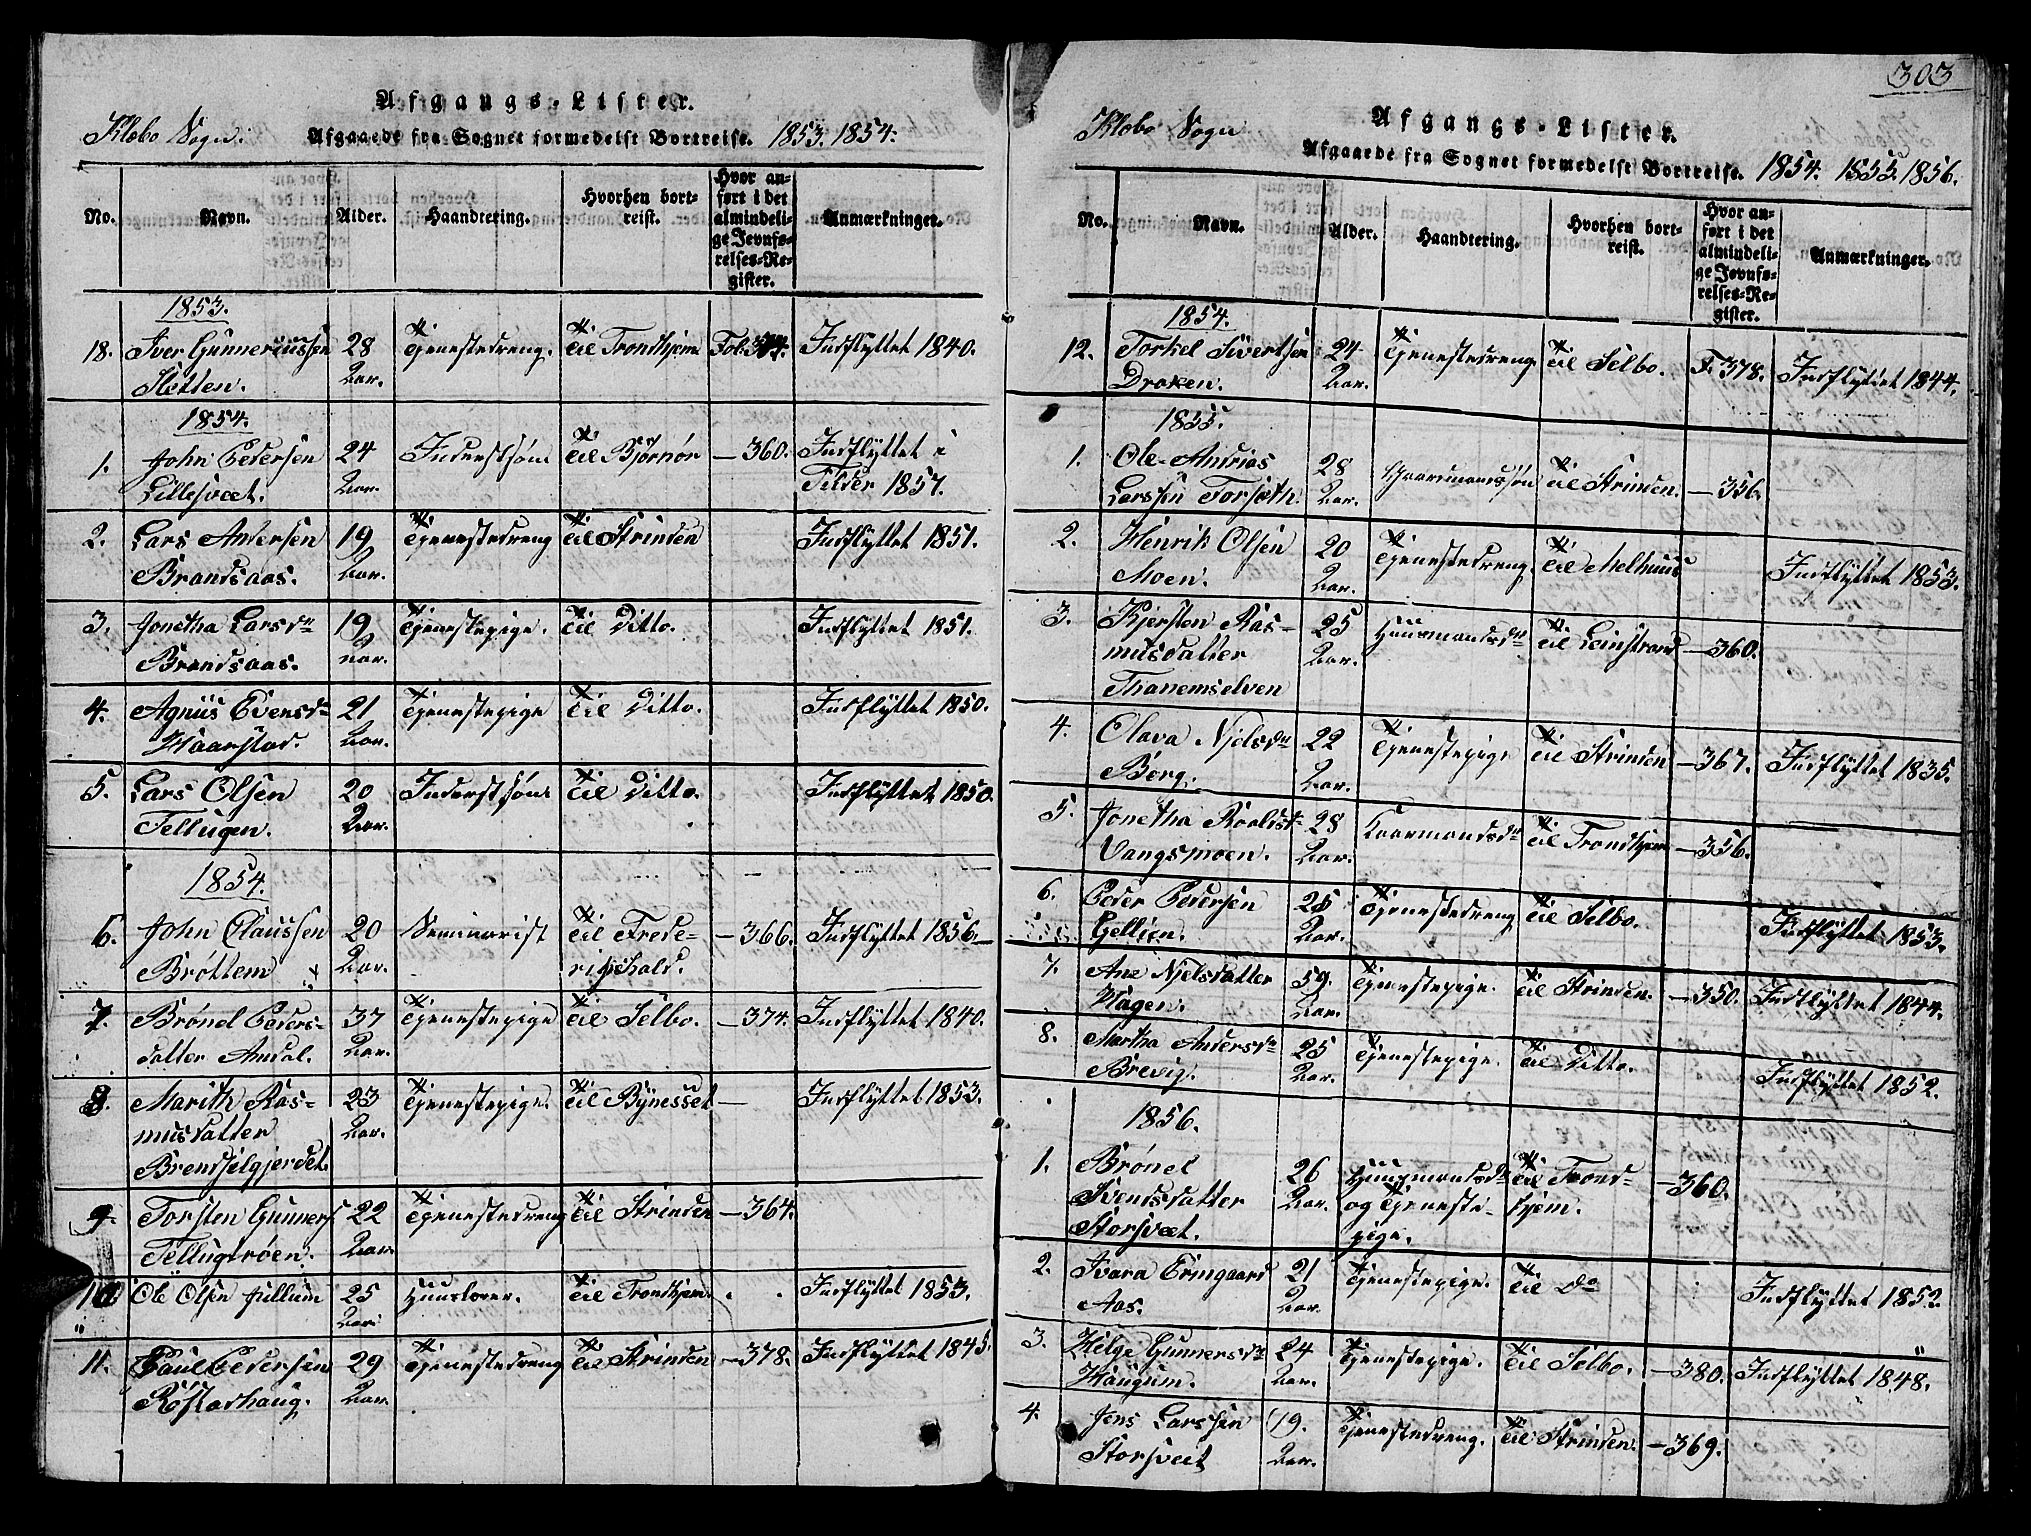 Afgangs-Lister.
Klæbo Sogn. Afgaaede fra Sognet formedelst Bortreise. 1853. 1854.
No. Navn. Alder. Haandtering. Hvorhen bortreist. Hvor anført i det almindelige Jevnførelses-Register. Anmærkninger.
1853.
18. Iver Gunneriussen 28 Tjenestedreng. til Trondhjem Fol. Indflyttet 1840.
Sletten. Aar.
1854.
1. John Pedersen 24 Inderstsøn til Bjørnør — 360. Indflyttet i
Lillesveet. Aar. Tilder 1857.
2. Lars Andersen 19 Tjenestedreng til Strinden Indflyttet 1851.
Brandsaas. Aar.
3. Jonetha Larsdr 19 Tjenestepige. til Ditto. Indflyttet 1851.
Brandsaas. Aar.
4. Agnis Evensdr 21 Tjenestepige til Ditto. Indflyttet 1850.
Haarstad. Aar.
5. Lars Olsen 20 Inderstsøn til Ditto. Indflyttet 1850.
Tellugen. Aar.
1854.
6. John Claussen 20 Seminarist til Frede- — 366. Indflyttet 1856.
Brøttem Aar. rikshald.
7. Brønel Peders- 37 Tjenestepige til Selbo. — 374. Indflyttet 1840.
datter Amdal. Aar.
8. Marith Ras- 23 Tjenestepige. til Bynesset — Indflyttet 1853.
musdatter Aar.
Brendsilgjerdet.
9. Torsten Gunners 22 Tjenestedreng til Strinden — 364.
Tellugtrøen. Aar.
10 Ole Olsen Jullum 25 Huuslærer. til Trondhjem. Indflyttet 1853.
Aar.
11. Paul Pedersen 29 Tjenestedreng til Strinden — 378. Indflyttet 1845.
Røstarhaug. Aar.
303
Afgangs-Lister.
Klæbo Sogn Afgaaede fra Sognet formedelst Bortreise. 1854. 1855. 1856.
No. Navn. Alder. Haandtering. Hvorhen bortreist. Hvor anført i det almindelige Jevnførelses-Register. Anmærkninger.
1854.
12. Torkel Sivertsen 24 Tjenestedreng til Selbo. F. 378. Indflyttet 1844.
Draxen. Aar.
1855.
1. Ole Andrias 28 Gaardmandssøn til Strinden. — 356.
Larssen Forseth. Aar.
2. Henrik Olsen 20 Tjenestedreng. til Melhuus Indflyttet 1853.
Moen. Aar.
3. Kjersten Ras- 25 Huusmandsdr til Leinstrand — 360.
musdatter Aar.
Thanemselven
4. Olava Njelsdr 22 Tjenestepige til Strinden — 367. Indflyttet 1835.
Berg. Aar.
5. Jonetha Roaldsdr 28 Gaarmandsdr til Trondhjem — 356.
Vangsmoen. Aar.
6. Peder Pedersen 25 Tjenestedreng til Selbo. Indflyttet 1853.
Gellien. Aar.
7. Ane Njelsdatter 59. Tjenestepige. til Strinden. — 350. Indflyttet 1844.
Hagen. Aar.
8. Martha Andersdr 25 Tjenestepige. til Ditto. Indflyttet 1852.
Brevig. Aar.
1856.
1. Brønel 26 Huusmandsdr til Trond- — 360.
Svendsdatter Aar. og Tjeneste- hjem.
Storsveet. pige.
2. Ivara Ermgaard 21 Tjenestepige. til Do Indflyttet 1852.
Aas. Aar.
3. Helge Gunnersdr 24 Tjenestepige. til Selbo. — 380. Indflyttet 1848.
Haugum. Aar.
4. Jens Larssen 19. Tjenestedreng. til Strinden. — 369.
Storsveet Aar.